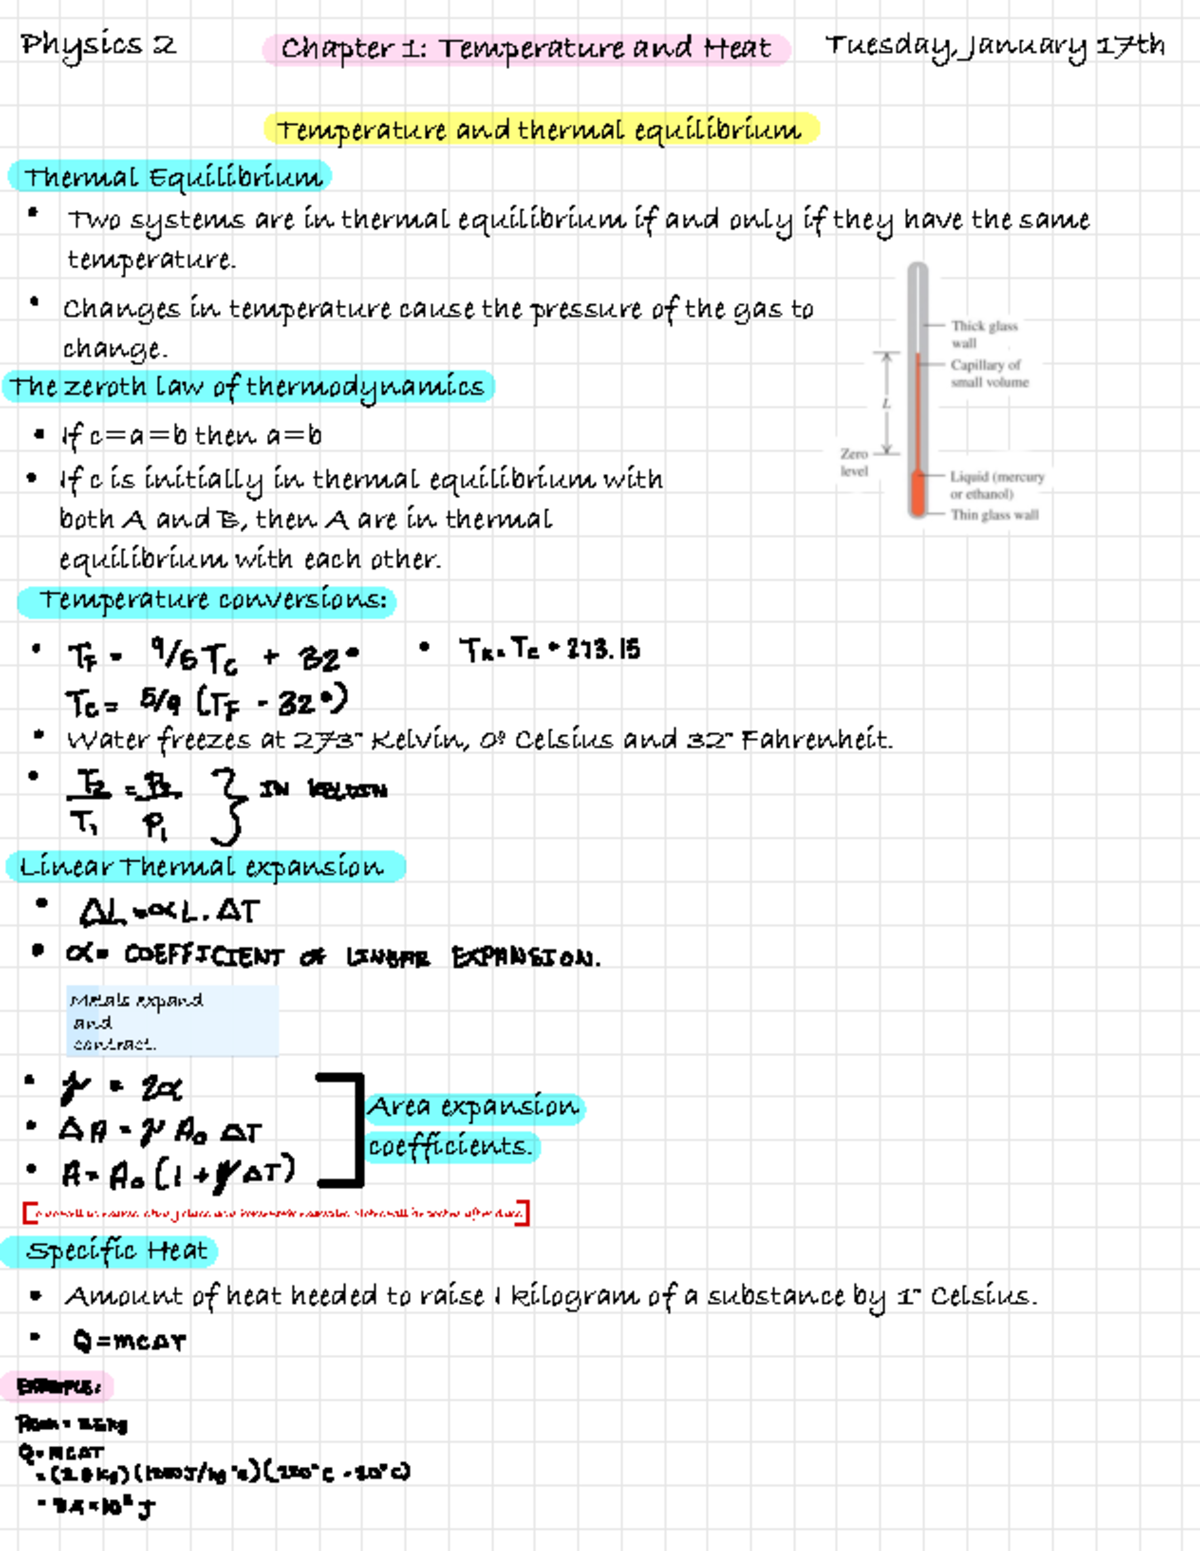 Physics 2 Chapter 1: Temperature and Heat Tuesday, January 17th
Temperature and thermal equilibrium
Thermal Equilibrium
• Two systems are in thermal equilibrium if and only if they have the same
temperature.
• Changes in temperature cause the pressure of the gas to
change.
Thick glass
wall
Capillary of
small volume
L
Zero
level
Liquid (mercury
or ethanol)
Thin glass wall
The zeroth law of thermodynamics
• If c=a=b then a=b
• If c is initially in thermal equilibrium with
both A and B, then A are in thermal
equilibrium with each other.
Temperature conversions:
• TF = 9/5 TC + 32° • TK = TC + 273.15
TC = 5/9 (TF - 32°)
• Water freezes at 273° Kelvin, 0° Celsius and 32° Fahrenheit.
• T2/T1 = P2/P1 } IN KELVIN
Linear Thermal expansion
• ΔL = αL. ΔT
• α = COEFFICIENT OF LINEAR EXPANSION.
Metals expand
and
contract.
• γ = 2α
• ΔA = γ A0 ΔT
• A = A0 (1 + γΔT)
Area expansion
coefficients.
Specific Heat
• Amount of heat needed to raise 1 kilogram of a substance by 1° Celsius.
• Q = mcΔT
EXAMPLE:
Q = MCΔT